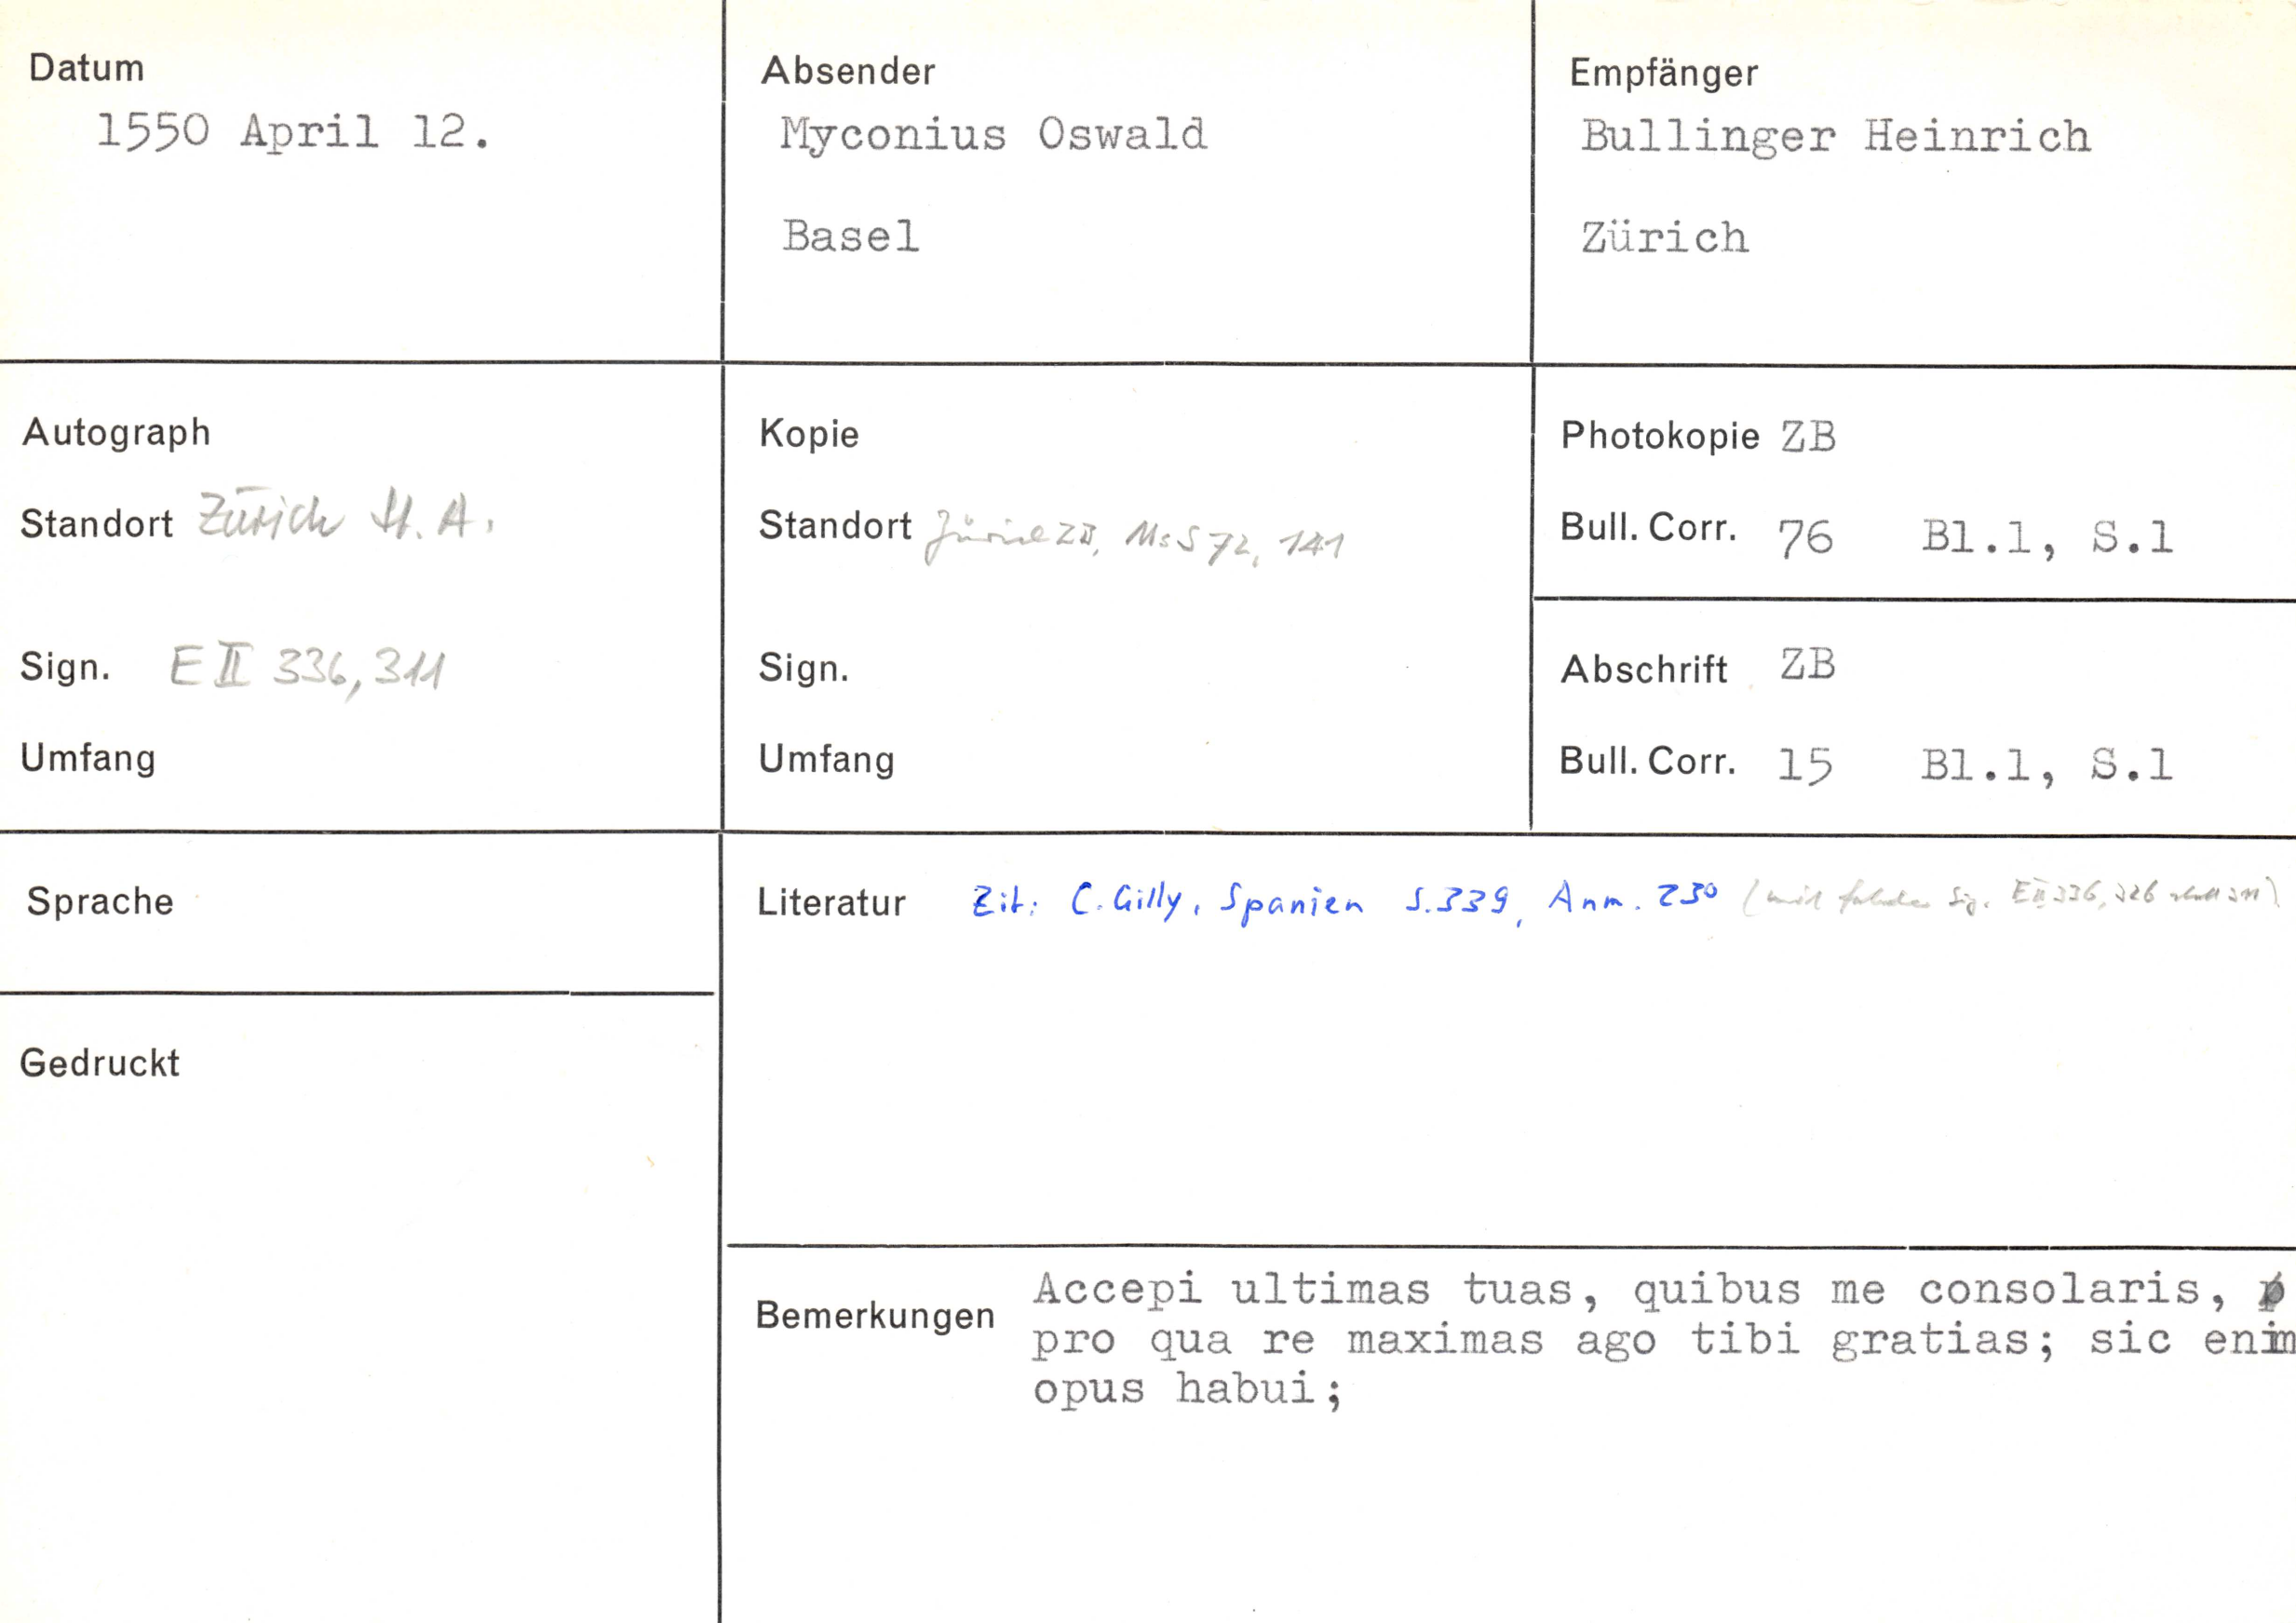 Datum
1550 April 12.
Absender
Myconius Oswald
Basel
Empfänger
Bullinger Heinrich
Zürich
Autograph
Standort Zürich St.A.
Sign. E II 336, 311
Umfang
Kopie
Standort Zürich ZB, Ms S 72, 141
Sign.
Umfang
Photokopie ZB
Bull. Corr. 76 Bl.1, S.1
Abschrift ZB
Bull. Corr. 15 Bl.1, S.1
Sprache
Gedruckt
Literatur Zit: C. Gilly, Spanien S.339, Anm. 230 (mit falscher Sig. E II 336, 326 statt 311).
Bemerkungen
Accepi ultimas tuas, quibus me consolaris,
pro qua re maximas ago tibi gratias; sic enim
opus habui;